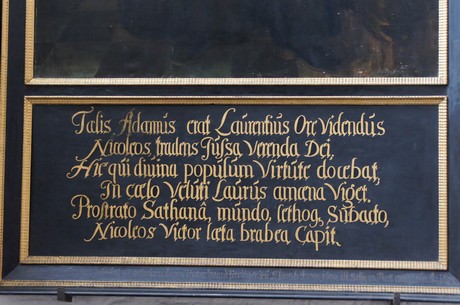 Talis Adamus erat Laurentius Ore Videndus
Nicoleos, tradens Jussa Verenda Dei,
Hic qui diuina populum Virtute docebat,
In cælo Veluti Laurus amæna Viget.
Prostrato Sathanâ, mundo, lethoq, Subacto,
Nicoleos Victor læta brabea Capit.